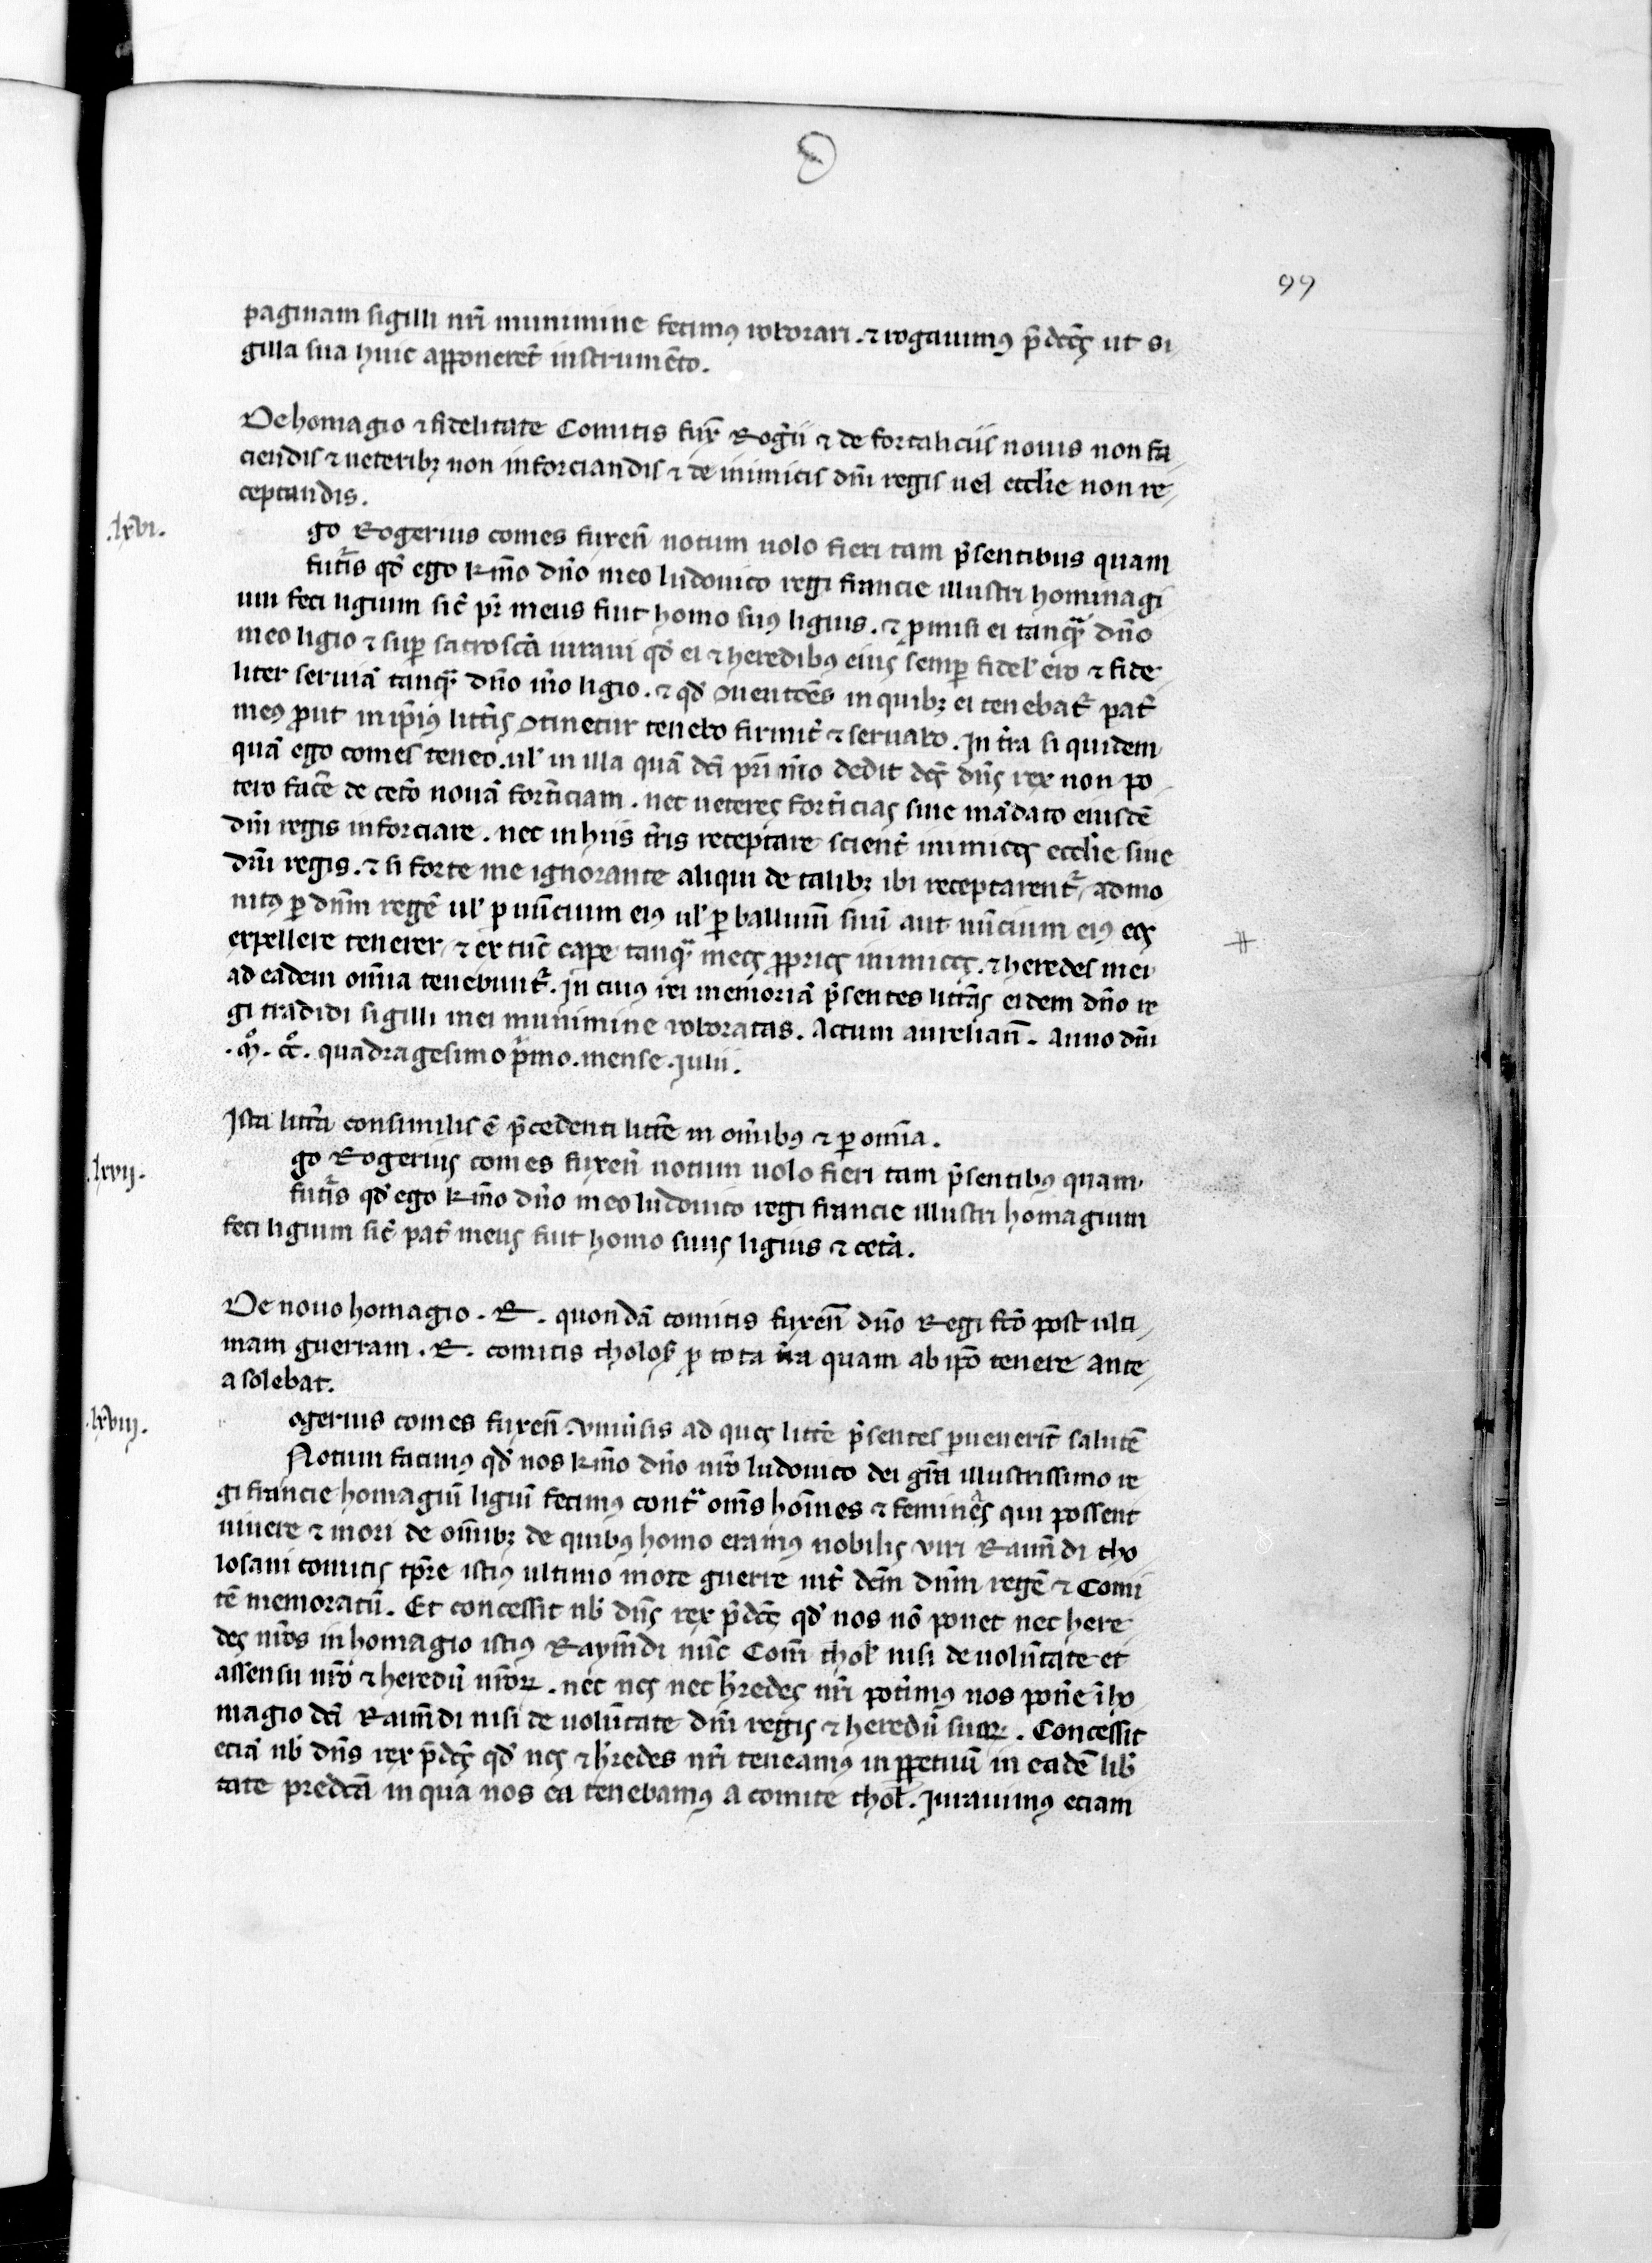 99
paginam sigilli nr̄i munimine fecimꝰ roborari. ⁊ rogauimꝰ p̄dc̄os ut si
gilla sua huic apponerēt instrumēto.
De homagio ⁊ fidelitate Comitis fux̄ Rog̾ii ⁊ de fortaliciis nouis non fa
ciendis ⁊ ueteribꝫ non inforciandis ⁊ de inimicis dn̄i regis uel eccl̄ie non re
ceptandis.
.lxvi.
go Rogerius comes fuxen̄ notum uolo fieri tam p̄sentibus quam
futur̄is qd̾ ego kr̄mo dn̄o meo ludouico regi francie illustri hominagi
um feci ligium sic̄ pr̄ meus fuit homo suꝰ ligius. ⁊ ꝓmisi ei tanqᷓ dn̄o
meo ligio ⁊ suꝑ sacrosc̄a iuraui qd̾ ei ⁊ heredibꝰ eius semꝑ fidel̾ ero ⁊ fide
liter seruiā tanqᷓ dn̄o m̄o ligio. ⁊ qd̾ ꝯuentōes in quibꝫ ei tenebat̾ pat̾
meꝰ ꝓut in ip̄iꝰ litt̄is ꝯtinetur tenebo firmit̾ ⁊ seruabo. In t̄ra si quidem
quā ego comes teneo. ul̾ in illa quā dc̄i pr̄i m̄o dedit dc̄s dn̄s rex non po
tero fac̄e de cet̄o nouā fort̾iciam. nec ueteres fort̾icias sine mādato eiusdē
dn̄i regis inforciare. nec in hiis t̄ris receptare scient̾ inimicos eccl̄ie siue
dn̄i regis. ⁊ si forte me ignorante aliqui de talibꝫ ibi receptarent̾, admo
nitꝰ ꝑ dn̄m regē ul̾ ꝑ nūcium eiꝰ ul̾ ꝑ balliuū suū aut nūcium eiꝰ eos
expellere tenerer, ⁊ ex tūc caꝑe tanqᷓ meos ꝓprios inimicos. ⁊ heredes mei
ad eadem om̄ia tenebunt̾. In cuius rei memoriā p̄sentes litt̄as eidem dn̄o re
gi tradidi sigilli mei munimine roboratas. Actum aurelian̄. Anno dn̄i
.Mͦ. ccͦ. quadragesimo p̾mo. mense. Julii.
Ista litt̄a consimilis ē p̄cedenti litt̄e in om̄ibꝰ ⁊ ꝑ om̄ia.
.lxvij.
go Rogerius comes fuxen̄ notum uolo fieri tam p̄sentibꝰ quam
futur̄is qd̾ ego kr̄mo dn̄o meo ludouico regi francie illustri homagium
feci ligium sic̄ pat̾ meus fuit homo suus ligius ⁊ cet̄a.
De nouo homagio. R. quondā comitis fuxen̄ dn̄o Regi fc̄o post ulti
mam guerram. R. comitis tholos̾ ꝓ tota t̄ra quam ab ip̄o tenere ante
a solebat.
.lxviij.
ogerius comes fuxen̄. Vniu̾sis ad quos litt̄e p̄sentes ꝑuenerīt salutē
Notum facimꝰ qd̾ nos kr̄mo dn̄o nr̄o ludouico dei gr̄a illustrissimo re
gi francie homagiū ligiū fecimꝰ contᷓ om̄s hoīnes ⁊ feminas qui possent
uiuere ⁊ mori de om̄ibꝫ de quibꝰ homo eramꝰ nobilis viri Raim̄di tho
losani comitis tp̄re istiꝰ ultimo mote guerre int̾ dc̄m dn̄m regē ⁊ Comi
tē memoratū. Et concessit nob̾ dn̄s rex p̄dc̄s qd̾ nos nō ponet nec here
des nr̄os in homagio istiꝰ Raym̄di nūc Com̄ thol̾ nisi de uolūtate et
assensu nr̄o ⁊ heredū nr̄oꝝ. nec nos nec h̾redes nr̄i pot̾imꝰ nos pon̄e ī ho
magio dc̄i Raim̄di nisi de uolūtate dn̄i regis ⁊ heredū suoꝝ. Concessit
eciā nob̾ dn̄s rex p̄dc̄s qd̾ nos ⁊ h̾redes nr̄i teneamꝰ in ꝑpetuū in eadē lib̾
tate predc̄a in qua nos ea tenebamꝰ a comite thol̾. Jurauimꝰ eciam